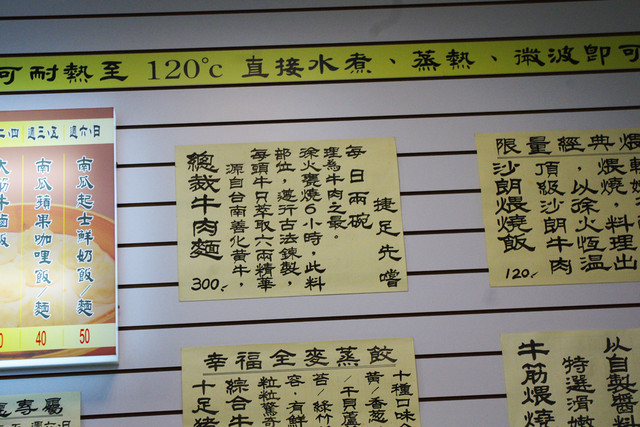 可耐熱至 120°c 直接水煮、蒸熱、微波即可
二.四 週三.五 週六.日
南瓜起士鮮奶飯/麵
50
南瓜蘋果咖哩飯/麵
40
總裁牛肉麵
300.
源自台南善化黃牛,
每頭牛只萃取六兩精華
部位,遵行古法鍊製,
徐火甕燒6小時,此料
理為牛肉之最。
每日兩碗
捷足先嚐
限量經典煨
沙朗煨燒飯
120.
頂級沙朗牛肉
,以徐火恆溫
煨燒,料理出
幸福全麥蒸餃
十種口味
黃/香蔥
/干貝蘆
苔/綠竹
容.有鮮
粒粒驚奇
綜合牛
十足豬
以自製醬料
特選滑嫩
牛筋煨燒
專屬